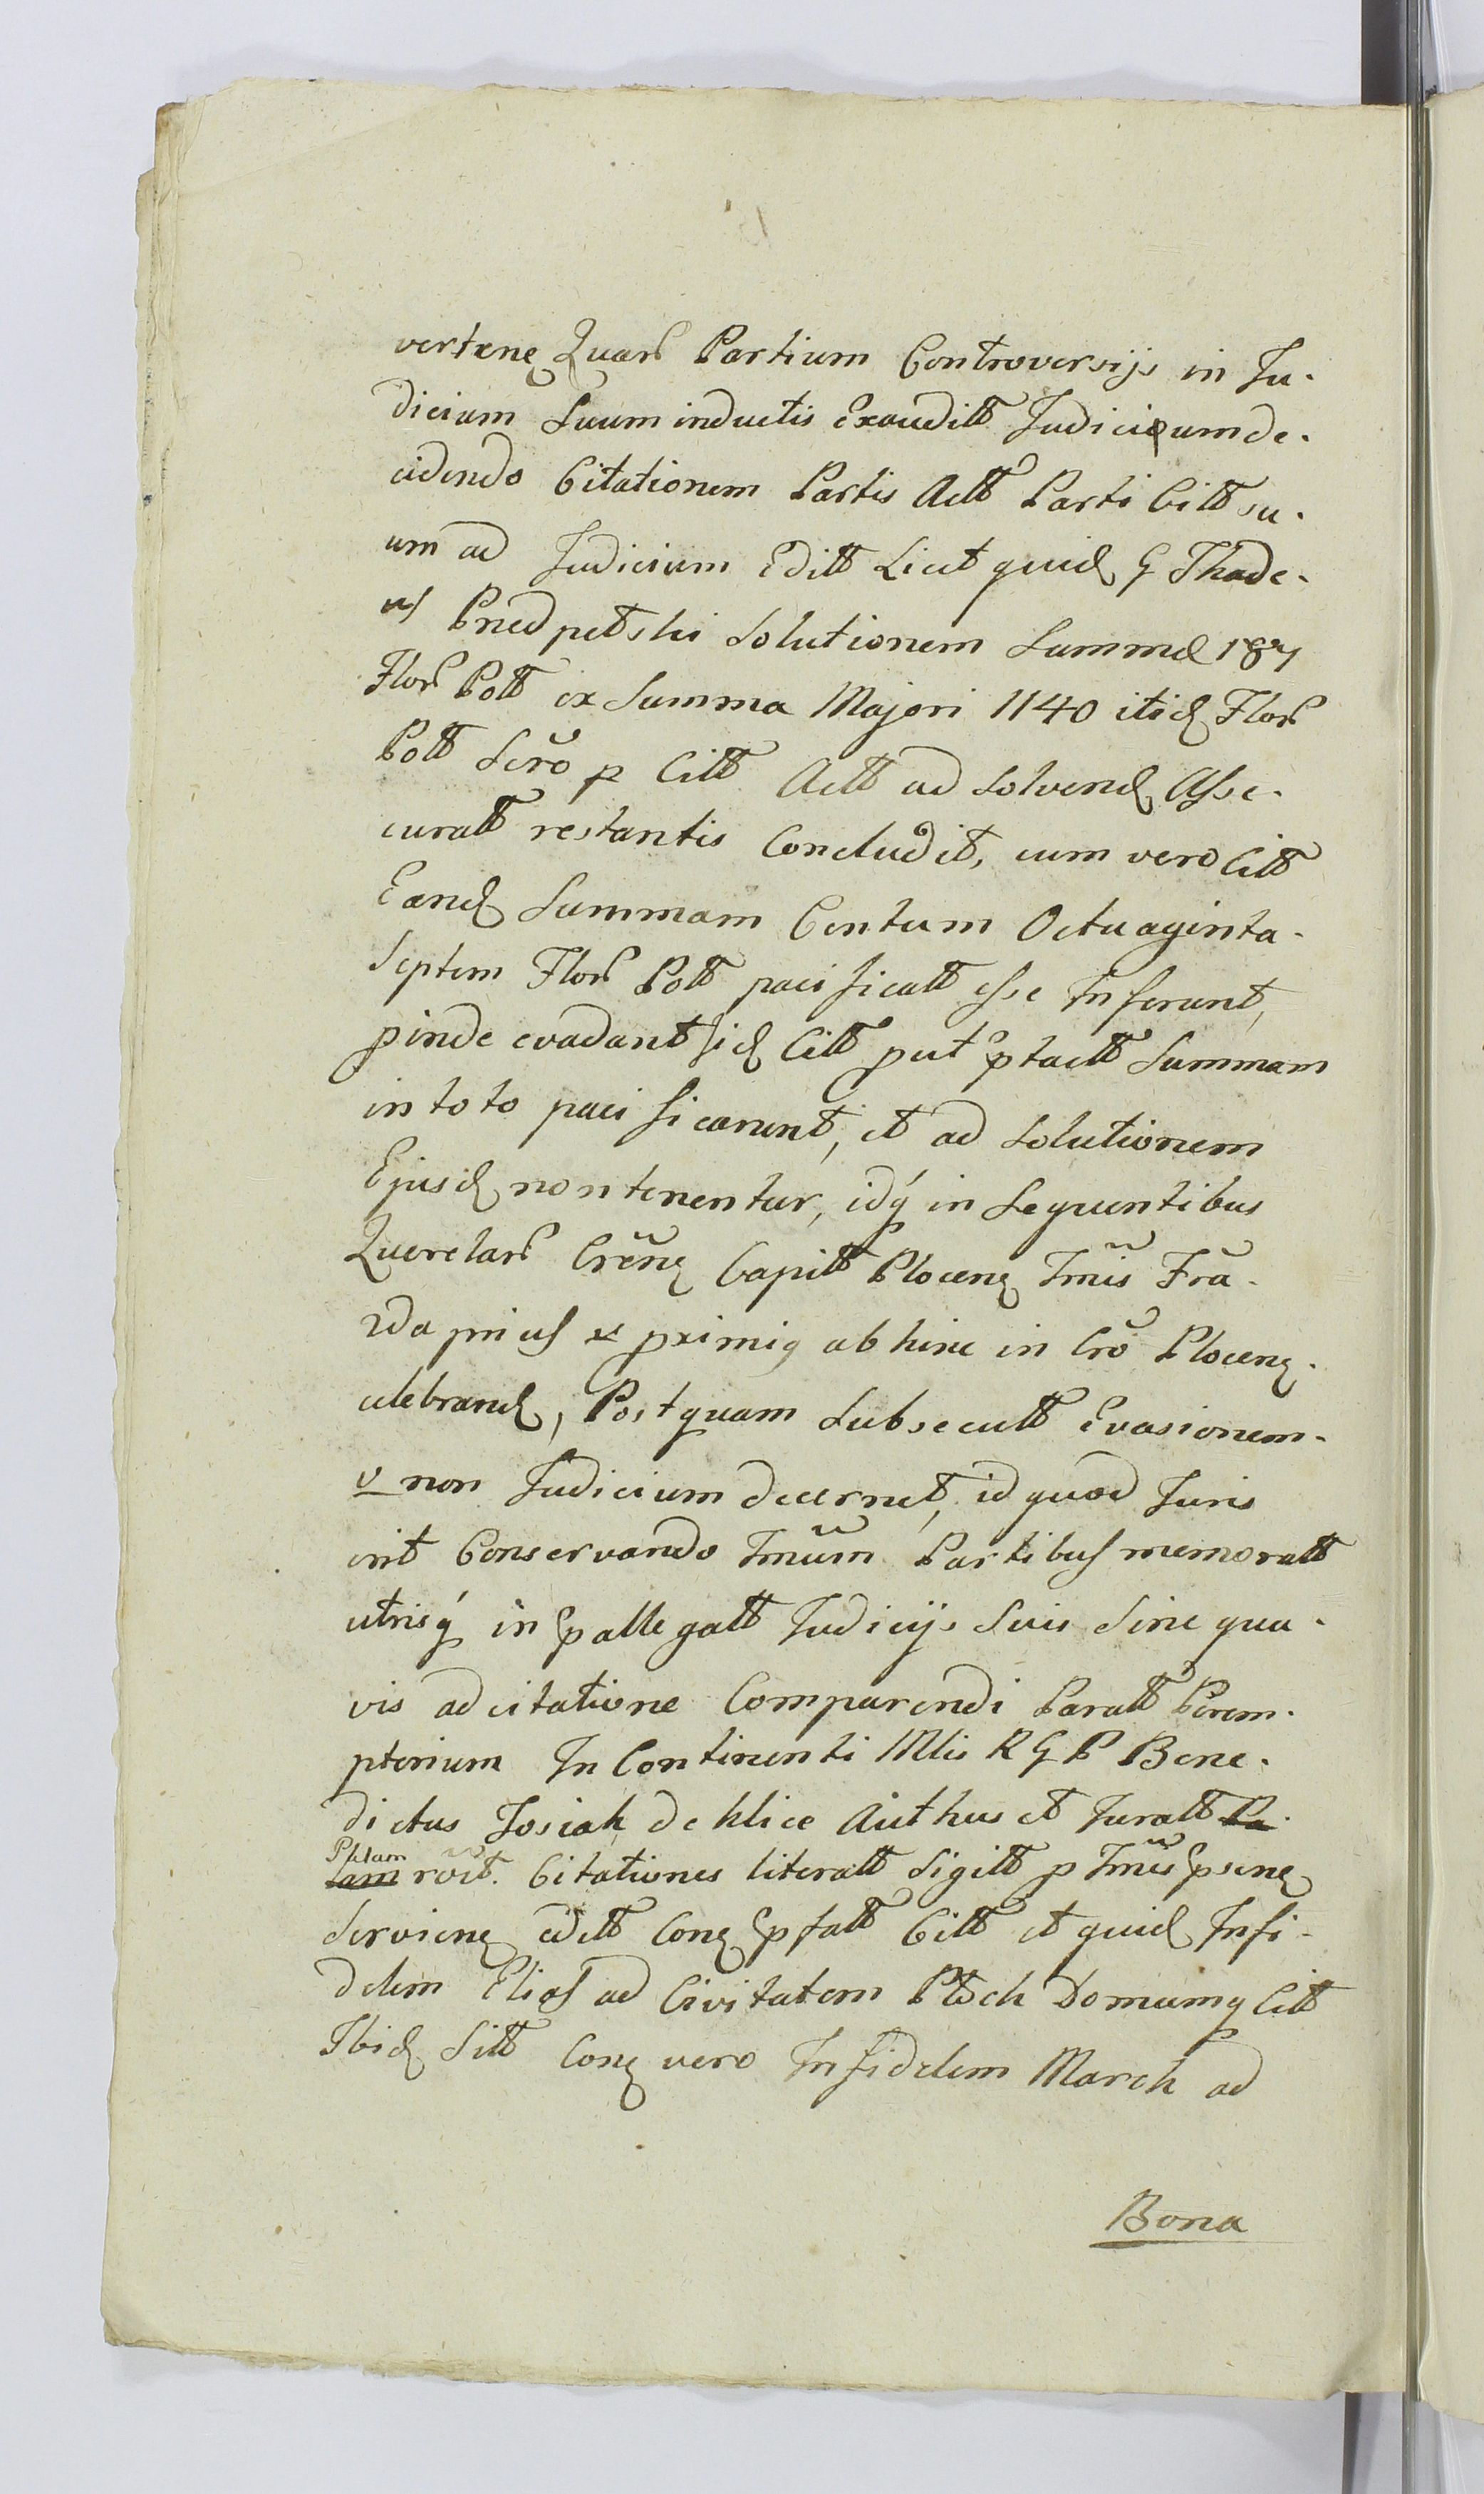 vertenę Quarẽ Partium Controversijs in Ju-
dicium Suum inductis Exauditt Judicium de-
cidendo Citationem Partis Actt Parti Citt su-
um ad Judicium Editt Licet quid G Thade-
us solutionem Summæ 187
Flor Pott ex Summa Majori 1140 itid Flor
Pott Scrõ p Citt Actt ad solvend Asse-
curatt restantis Concludit, cum vero Citt
Eand Summam Centum Octuaginta-
septem Flor Pott pacificatt esse Inferunt,
pinde evadant sid Citt put ptactt Summam
in toto pacificarunt, et ad solutionem
Ejusd non tenentur, idq́ in sequentibus
Querelar Crẽnę Capitt Plocenę Tmĩs Frã-
 abhinc in Crõ Plocenę
celebrand, Postquam Subsecutt Evasionem-
v non Judicium decernet, id quod Juris
erit Conservando Tmũm Partibus memoratt
utrisq́ in pallegatt Judicijs Suis Sine qua-
vis adcitatione Comparendi Paratt Perem-
ptorium In Continenti Mlis R G P Bene-
dictus Josiak de Klice Authus et Juratt Pa
Ptlam
lam rõit. Citationes literatt Sigitt p Tmũs psenę
Servienę editt Conę pfatt Citt et quid Infi-
delem Elias ad Civitatem Płock Domumq Citt
Ibid Sitt Conę vero Infidelem Marek ad
Bona